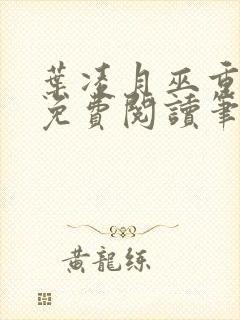 葉凌月巫重
免費閱讀筆
黃龍絲